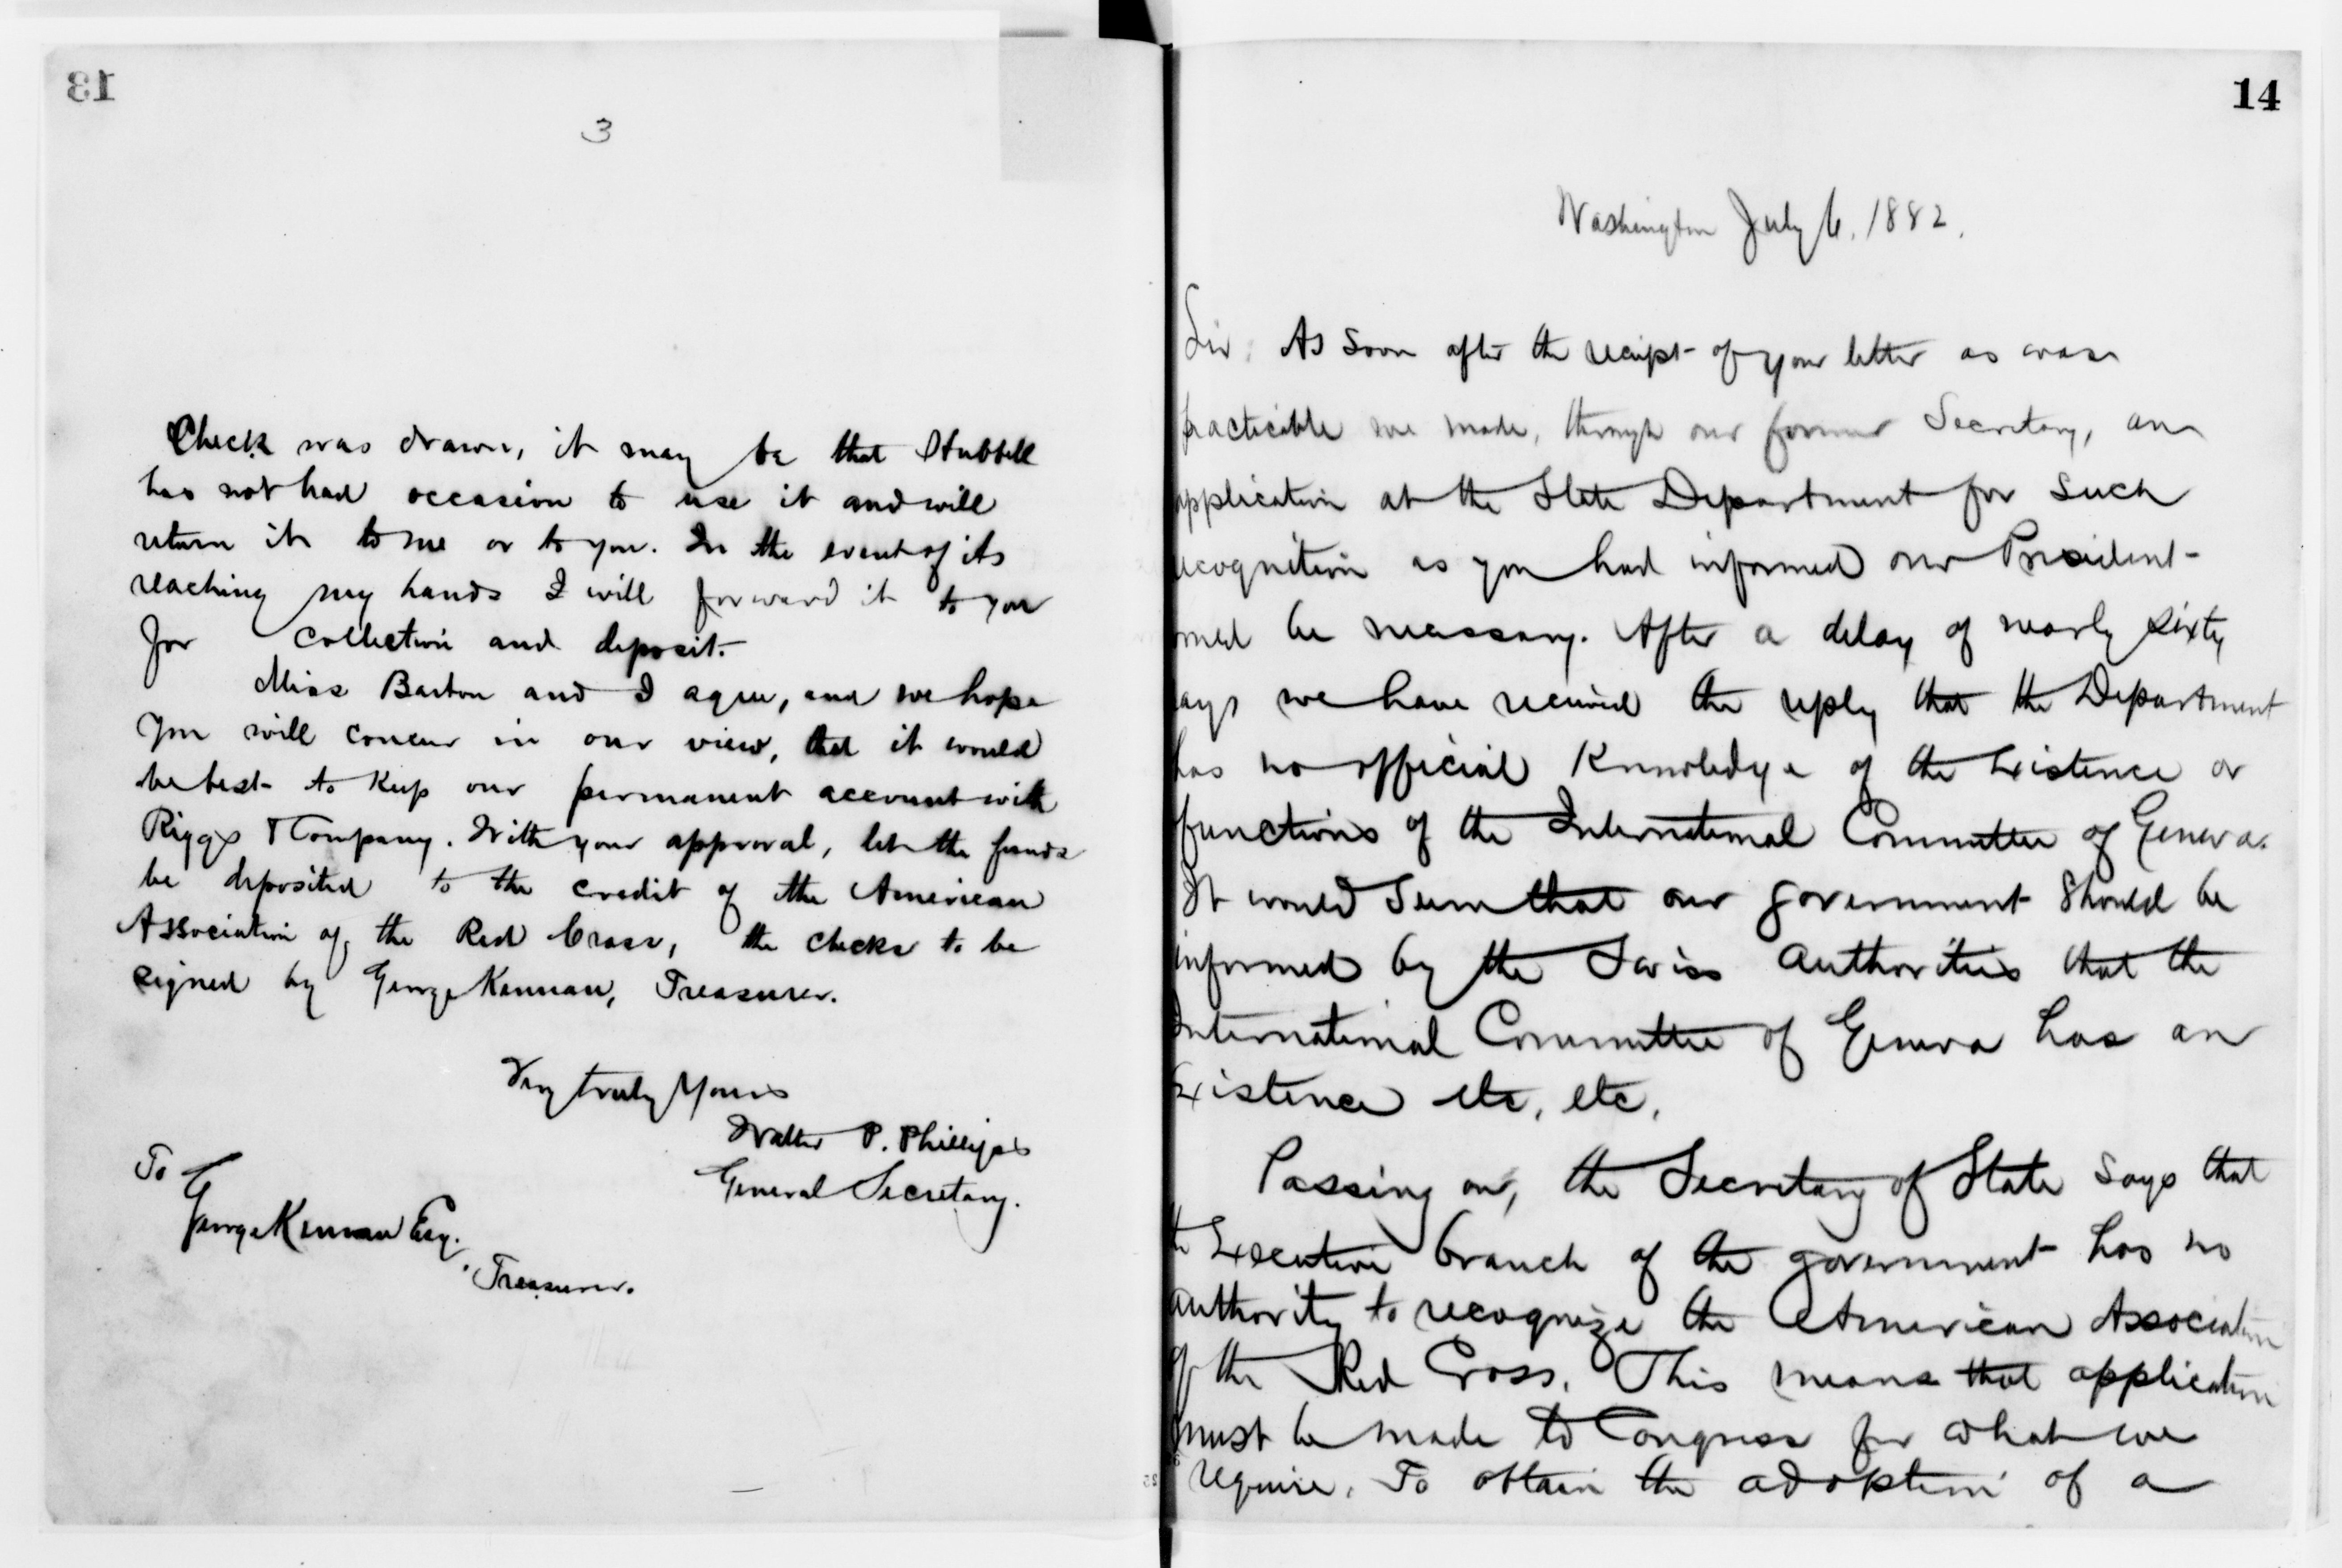 13
3
Check was drawn, it may be that Hubbell
has not had occasion to use it and will
return it to me or to you. In the event of its
reaching my hands I will forward it to you
for collection and deposit.
Miss Barton and I agree, and we hope
you will concur in our view, that it would
be best to keep our permanent account with
Riggs & Company. With your approval, let the funds
be deposited to the credit of the American
Association of the Red Cross, the checks to be
signed by George Kennan, Treasurer.
Very truly yours
Walter P. Phillips
General Secretary.
To
George Kennan Esq.
Treasurer.
14
Washington July 6, 1882.
Sir: As soon after the receipt of your letter as was
practicable we made, through our former Secretary, an
application at the State Department for such
recognition as you had informed our President
be necessary. After a delay of nearly sixty
days we have received the reply that the Department
has no official knowledge of the existence or
functions of the International Committee of Geneva.
It would seem that our government should be
informed by the Swiss authorities that the
International Committee of Geneva has an
existence etc, etc.
Passing on, the Secretary of State says that
the Executive branch of the government has no
authority to recognize the American Association
of the Red Cross. This means that application
must be made to Congress for what we
require. To obtain the adoption of a